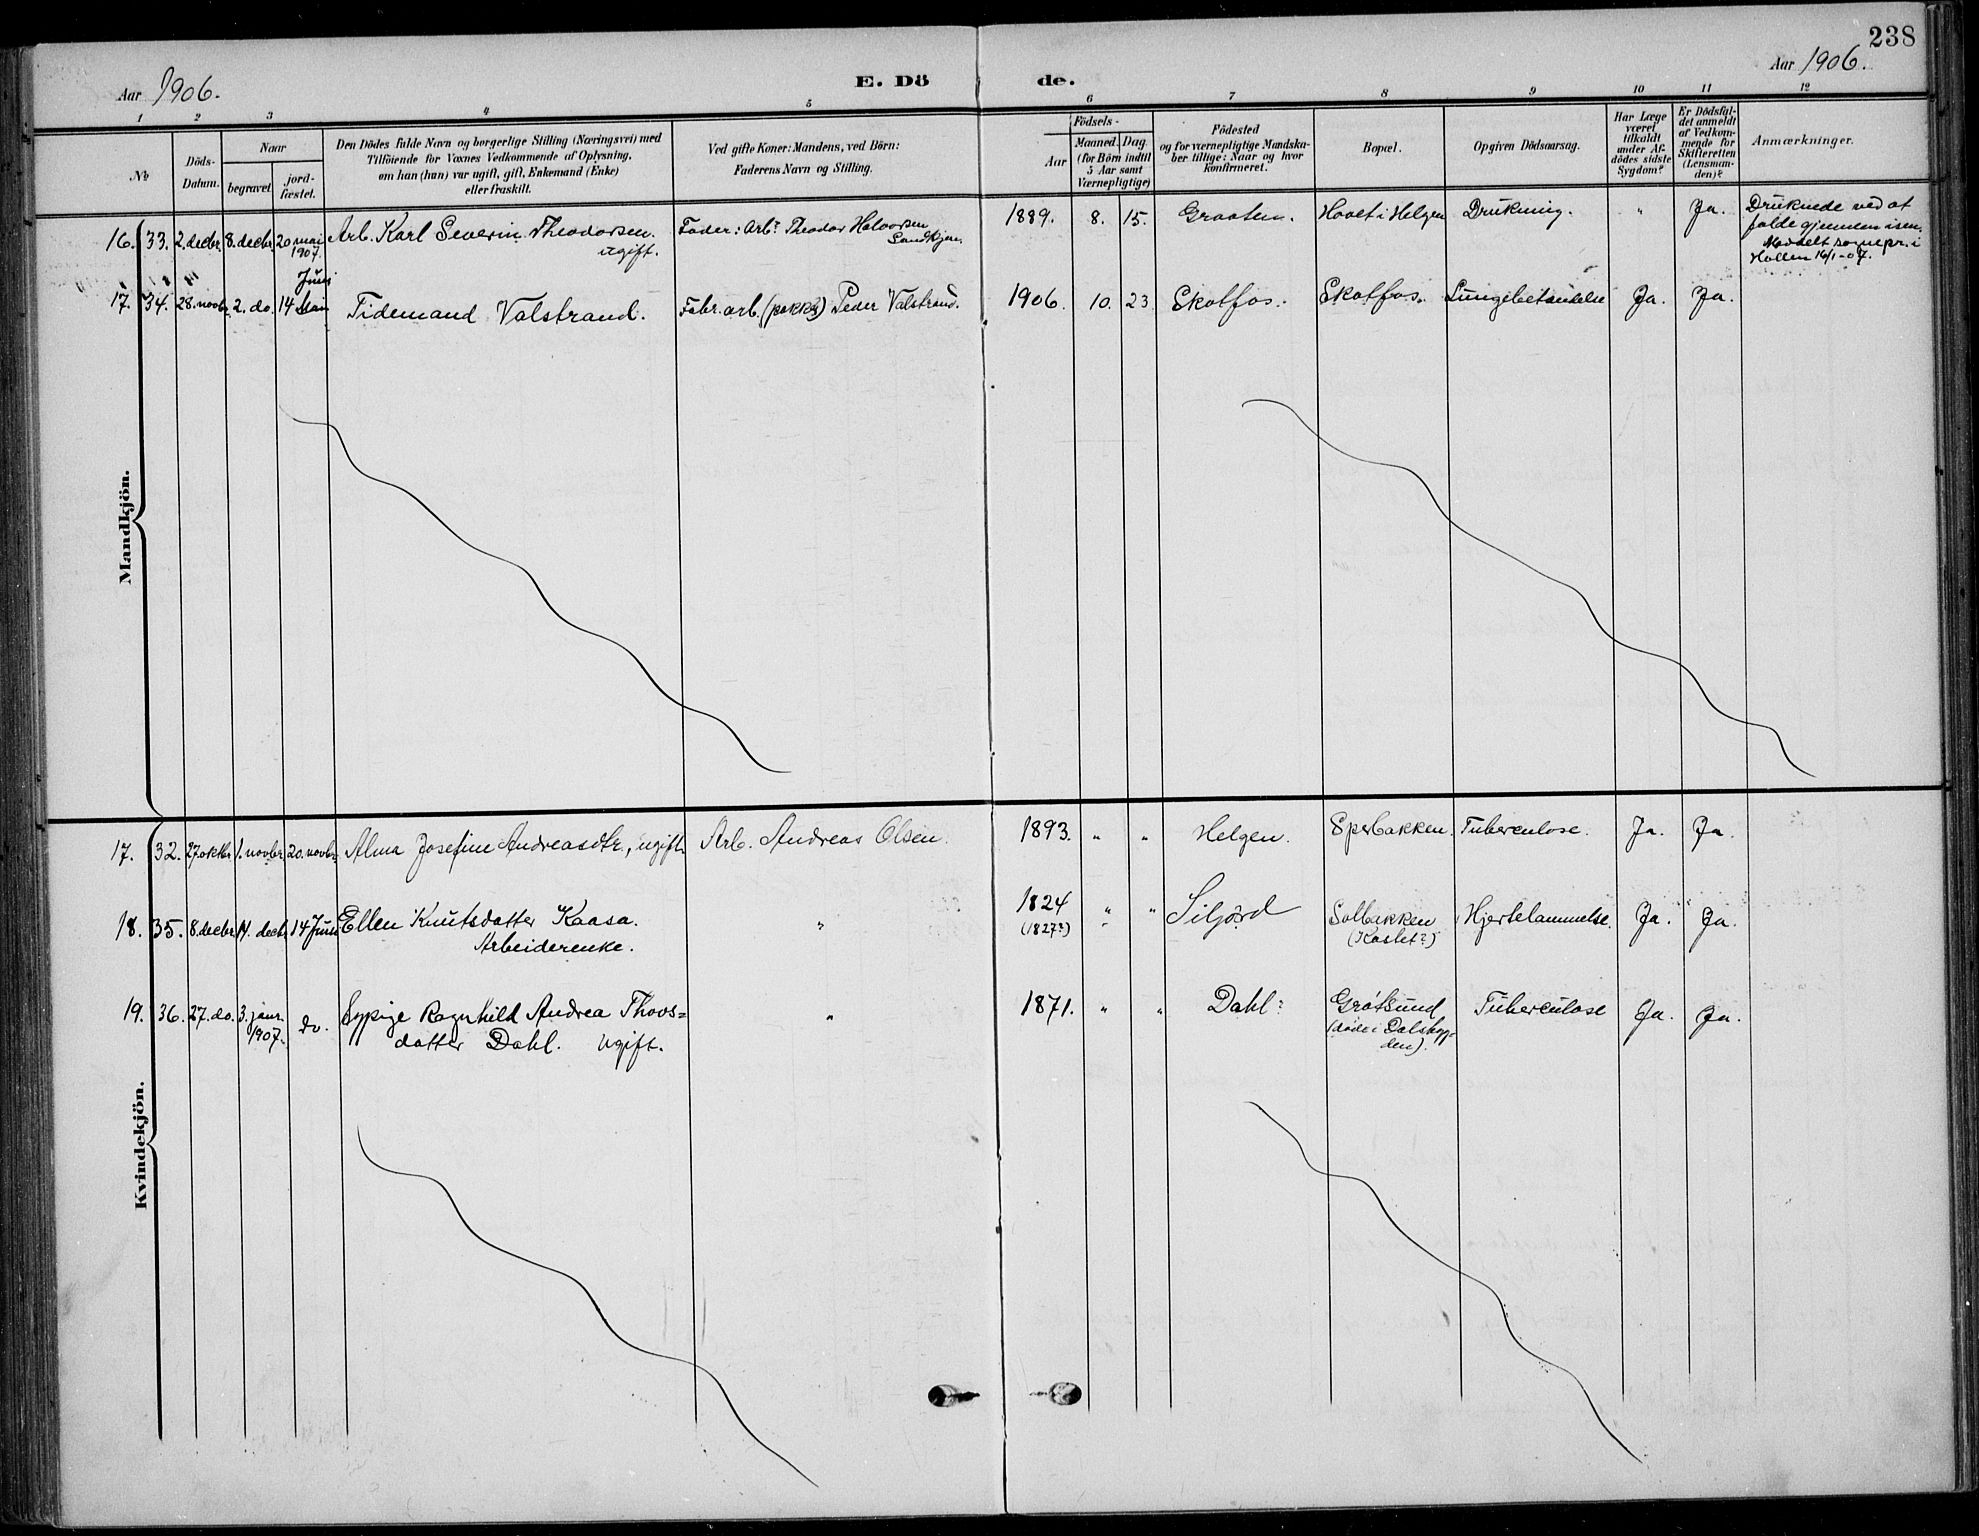 238
Aar 1906.
E. Dö de.
Aar 1906.
1 2 3 4 5 6 7 8 9 10 11 12
No
Döds-
Datum.
Naar
begravet
jord-
fæstet.
Den Dödes fulde Navn og borgerlige Stilling (Næringsvei) med
Tilföiende for Voxnes Vedkommende af Oplysning,
om han (hun) var ugift, gift, Enkemand (Enke)
eller fraskilt.
Ved gifte Koner: Mandens, ved Börn:
Faderens Navn og Stilling.
Födsels-
Aar
Maaned.
Dag.
(for Börn indtil
5 Aar samt
Værnepligtige)
Födested
og for værnepligtige Mandska-
ber tillige: Naar og hvor
konfirmeret.
Bopæl.
Opgiven Dödsaarsag.
Har Læge
været
tilkaldt
under Af-
dödes sidste
Sygdom?
Er Dödsfal-
det anmeldt
af Vedkom-
mende for
Skifteretten
(Lensman-
den)?
Anmærkninger.
Mandkjön.
16. 33. 2. decbr. 8. decbr. 20 mai 1907. Arb. Karl Severin Theodorsen. ugift. Fader: Arbr. Theodor Halvorsen Sandkjær. 1889. 8. 15. Graaten. Hovet i Helgen Drukning. " Ja. Druknede ved at
falde gjennem isen.
Meddelt sognepr. i
Hollen 16/1-07.
17. 34. 28. novbr. 2. do. 14 Mai Juni Tidemand Valstrand. Fabr. arb. (pakker) Peder Valstrand. 1906. 10. 23 Skotfos. Skotfos. Lungebetændelse Ja. Ja.
Kvindekjön.
17. 32. 27. oktbr. 1. novbr. 20. novbr. Alma Josefine Andreasdtr., ugift. Arb. Andreas Olsen. 1893. " " Helgen. Tuberculose. Ja. Ja.
18. 35. 8. decbr. 14. decbr. 14 Juni Ellen Knutsdatter Kaasa.
Arbeiderenke. " 1824
(1827?) " " Siljord Solbakken
(Kaslet?) Hjertelammelse. Ja. Ja.
19. 36. 27. do. 3. janr. 1907. do. Sypige Ragnhild Andrea Thovs=
datter Dahl. Ugift. " 1871. " " Dahl? Grøtsund
(døde i Dalsbyg-
den). Tuberculose Ja. Ja.